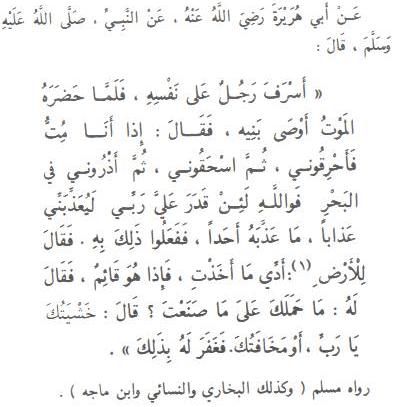 عَـنْ أَبي هُرَيْرَةَ رَضِيَ اللَّهُ عَنْهُ ، عَنْ النَّبِـيِّ ، صَلَّى اللَّهُ عَلَيْهِ
وَسَلَّمَ ، قَالَ :
« أَسْرَفَ رَجُـلٌ عَلى نَفْسِهِ ، فَلَمَّا حَضَرَهُ
المَوْتُ أَوْصَى بَنِيه ، فَقَـالَ : إِذا أَنَـا مُِتُّ
فَأَحْرِقُوني ، ثُـمَّ اسْحَقُوني ، ثُمَّ أَذْرُوني في
البَحْرِ فَواللَّـهِ لَئِـنْ قَدَرَ عَلَيَّ رَبِّـي لَيُعَذِّبَنِّي
عَذاباً ، مَا عَذَّبَهُ أَحداً ، فَفَعَلُوا ذَلِكَ بِهِ . فَقَالَ
لِلْأَرْضِ (١) : أَدِّي مَا أَخَذْتِ ، فَإِذا هُوَ قَائِمٌ ، فَقَالَ
لَهُ : مَا حَمَلَكَ عَلَى مَا صَنَعْتَ ؟ قَالَ : خَشْيَتُكَ
يَا رَبِّ ، أَوْ مَخَافَتُكَ . فَغَفَرَ لَهُ بِذَلِكَ » .
رواه مسلم ( وكذلك البخاري والنسائي وابن ماجه ) .